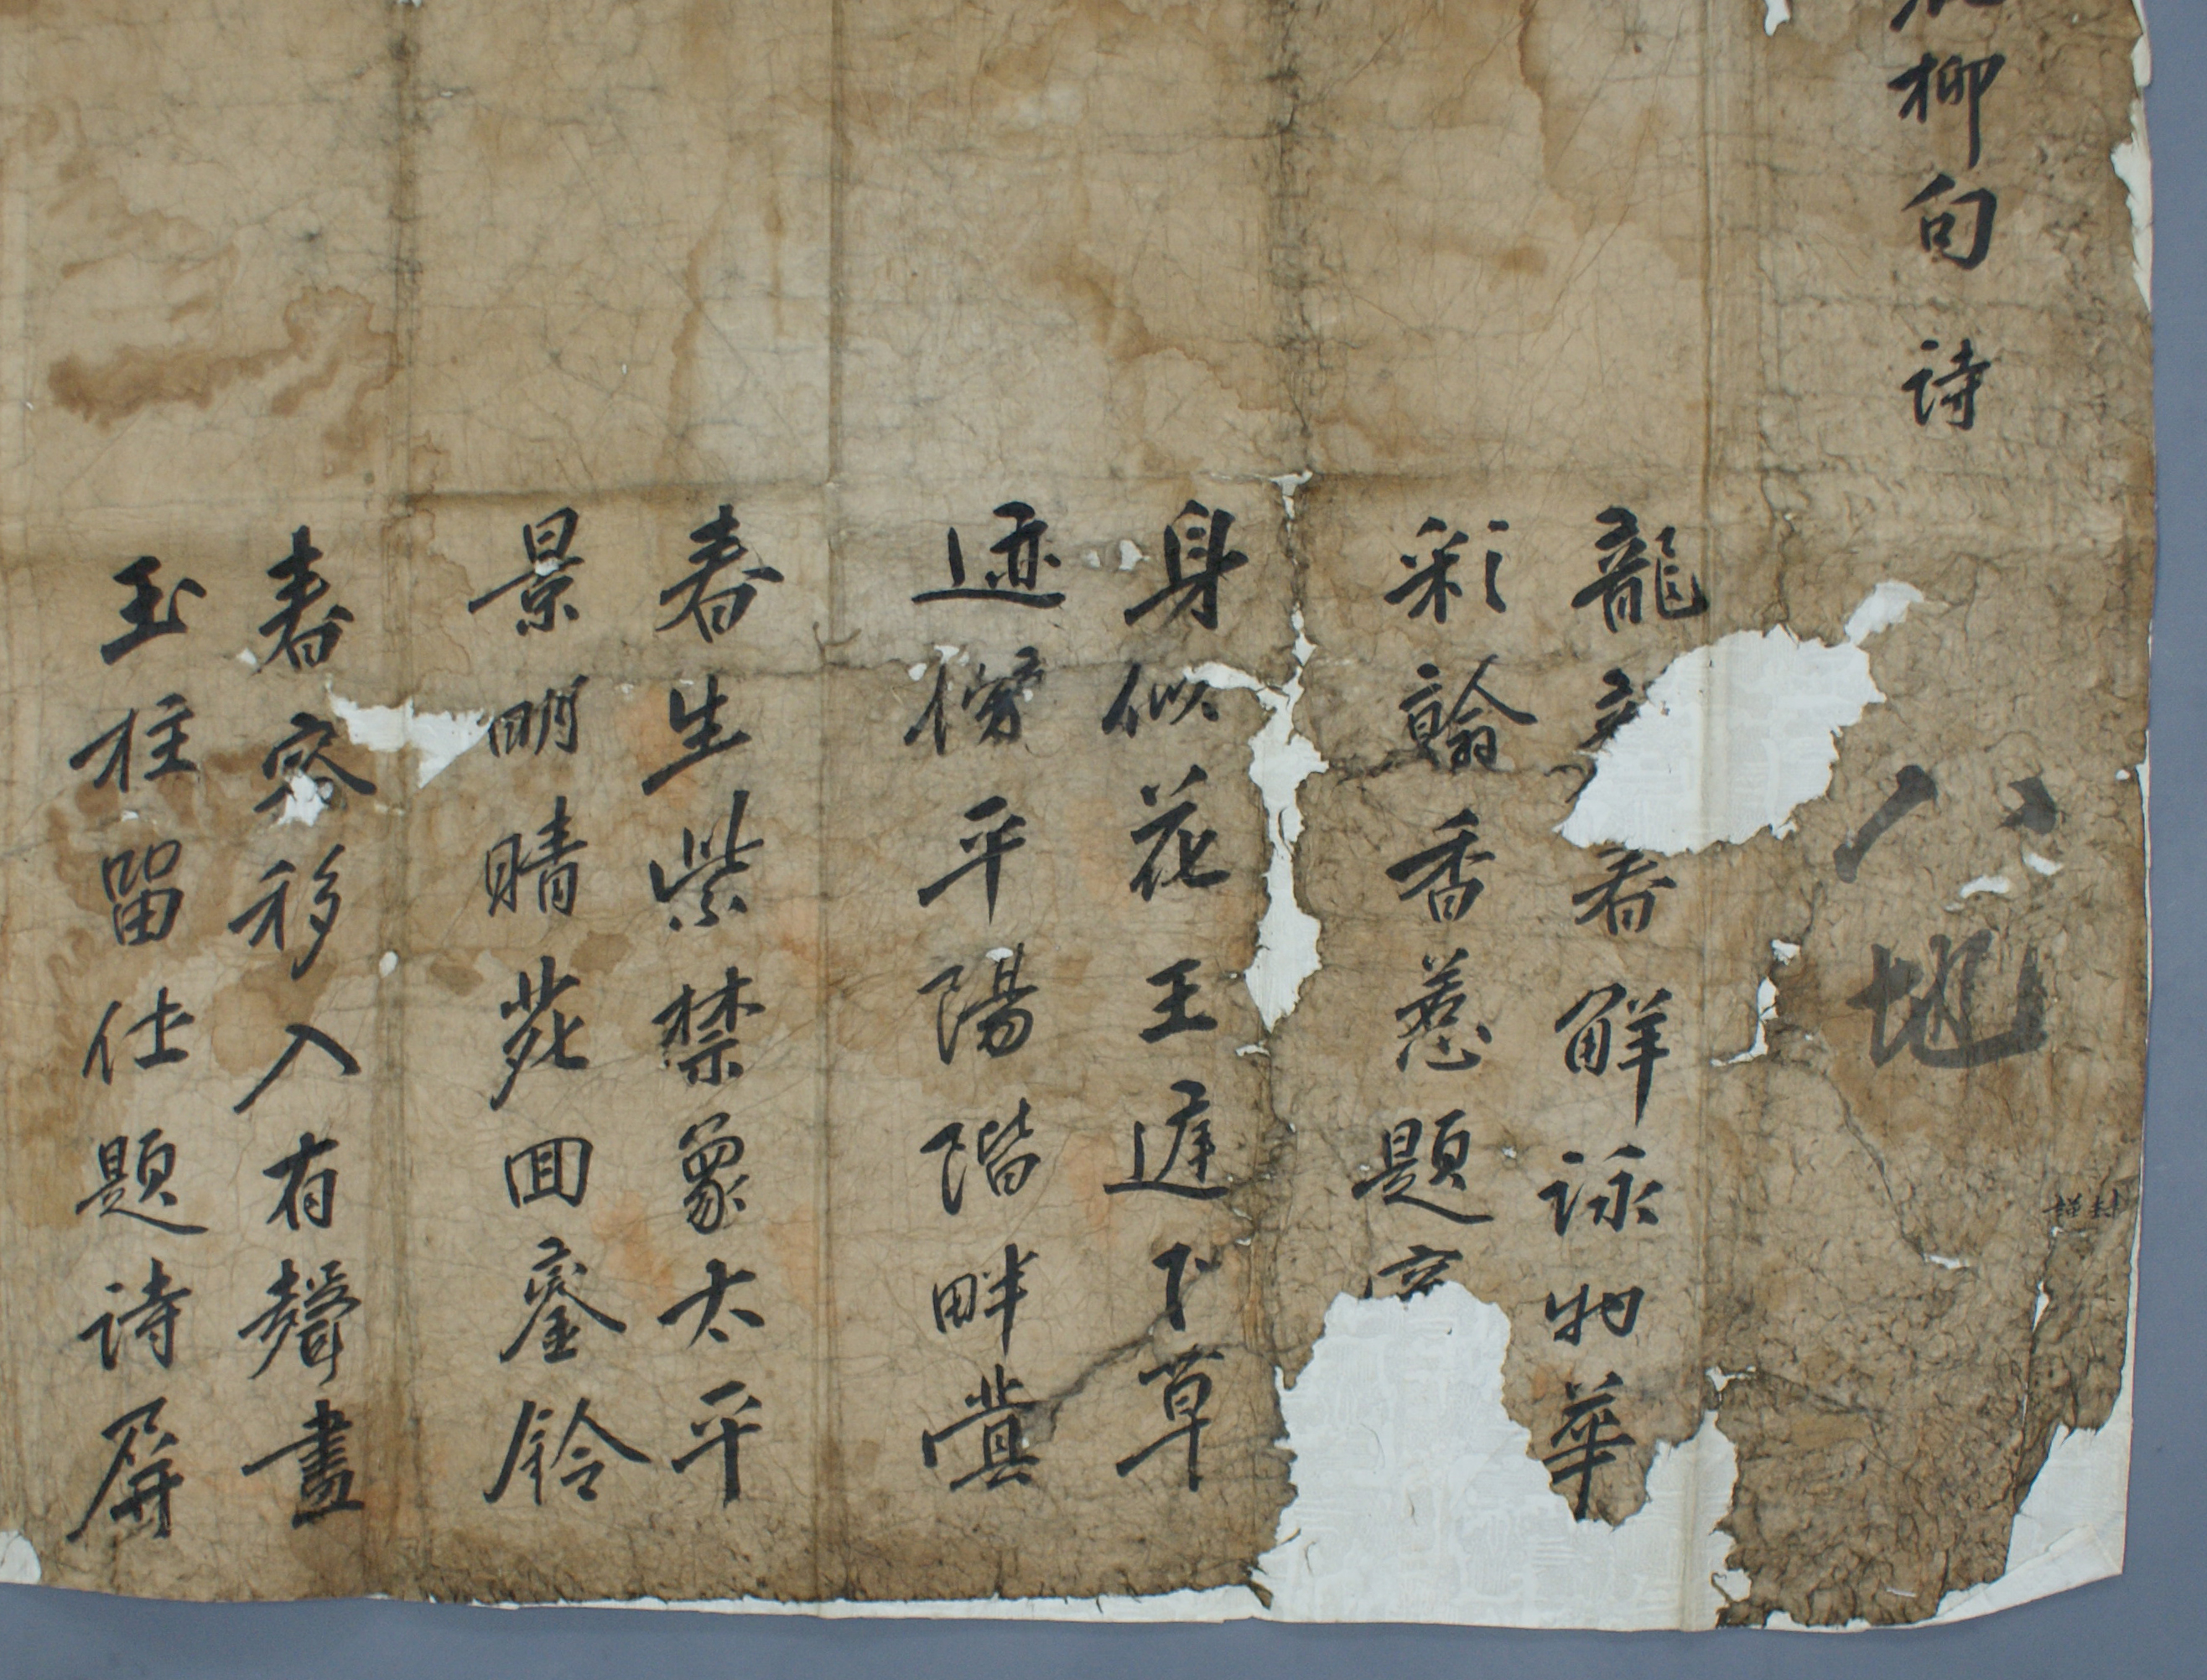 柳句詩
八地
謹封
龍 春解詠物華
彩翰香惹題
身似花王遅下草
迹傍平陽階畔蓂
春生紫禁象太平
景明晴苑回鑾鈴
春容移入有聲畫
玉柱留仕題詩屛